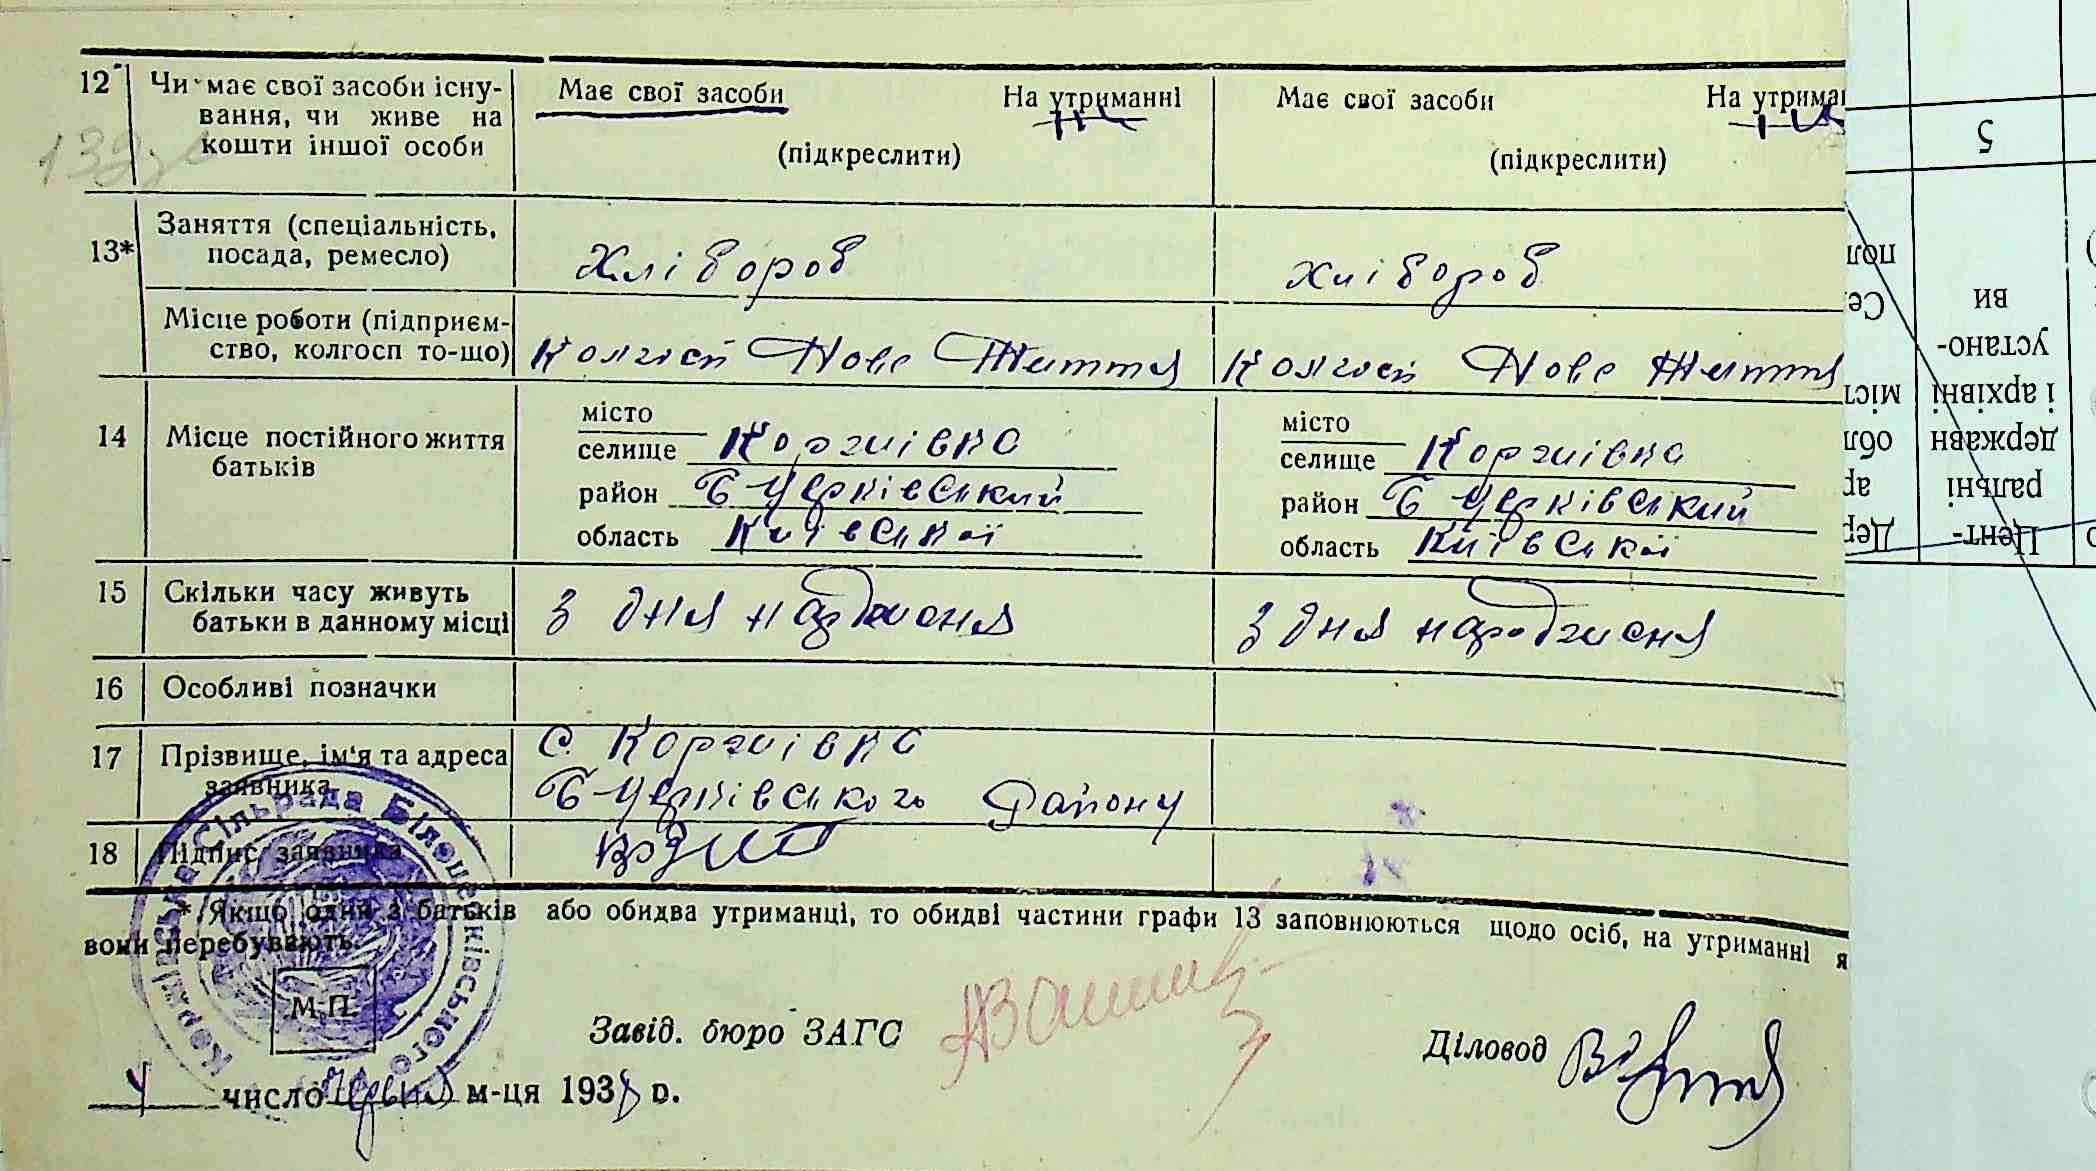 12 Чи має свої засоби існу-
вання, чи живе на
кошти іншої особи
Має свої засоби На утриманні
(підкреслити)
Має свої засоби На утриман
(підкреслити)
13* Заняття (спеціальність,
посада, ремесло)
Хлібороб
Хлібороб
Місце роботи (підприєм-
ство, колгосп то-що)
Колгосп Нове Життя
Колгосп Нове Життя
14 Місце постійного життя
батьків
місто
селище Коржівка
район Б Церківський
область Київській
місто
селище Коржівка
район Б Церківський
область Київській
15 Скільки часу живуть
батьки в данному місці
З дня народження
З дня народження
16 Особливі позначки
17 Прізвище, ім'я та адреса
заявника
С. Коржівка
Б-Церківського Району
18 Підпис заявника
* Якщо один з батьків або обидва утриманці, то обидві частини графи 13 заповнюються щодо осіб, на утриманні я
вони перебувають.
М. П.
Сільрада Білоцерківського
Завід. бюро ЗАГС
Діловод
число м-ця 193 р.
5
Цент-
ральні
державн
і архівні
устано-
ви